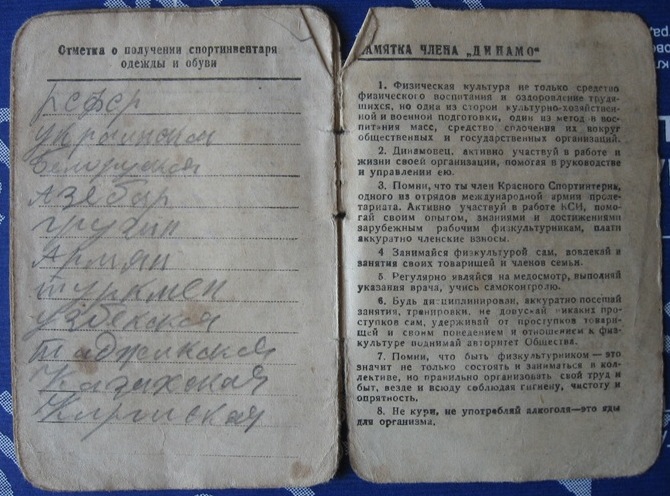 Отметка о получении спортинвентаря
одежды и обуви
РСФСР
украинская
Белорусская
Азебар
грузин
Армян
туркмен
узбекская
таджикская
Казахская
Киргиская
ПАМЯТКА ЧЛЕНА „ДИНАМО“
1. Физическая культура не только средство
физического воспитания и оздоровление трудя-
щихся, но одна из сторон культурно-хозяйствен-
ной и военной подготовки, один из метод в вос-
питания масс, средство сплочения их вокруг
общественных и государственных организаций.
2. Динамовец, активно участвуй в работе и
жизни своей организации, помогая в руководстве
и управлении ею.
3. Помни, что ты член Красного Спортинтерна,
одного из отрядов международной армии проле-
тариата. Активно участвуй в работе КСИ, помо-
гай своим опытом, знаниями и достижениями
зарубежным рабочим физкультурникам, плати
аккуратно членские взносы.
4 Занимайся физкультурой сам, вовлекай в
занятия своих товарищей и членов семьи.
5 Регулярно являйся на медосмотр, выполняй
указания врача, учись самоконтролю.
6. Будь дисциплинирован, аккуратно посещай
занятия, тренировки, не допускай никаких
проступков сам, удерживай от проступков товари-
щей и своим поведением и отношением к физ-
культуре поднимай авторитет Общества.
7. Помни, что быть физкультурником — это
значит не только состоять и заниматься в кол-
лективе, но правильно организовать свой труд и
быт, везде и всюду соблюдая гигиену, чистоту и
опрятность.
8. Не кури, не употребляй алкоголя—это яды
для организма.